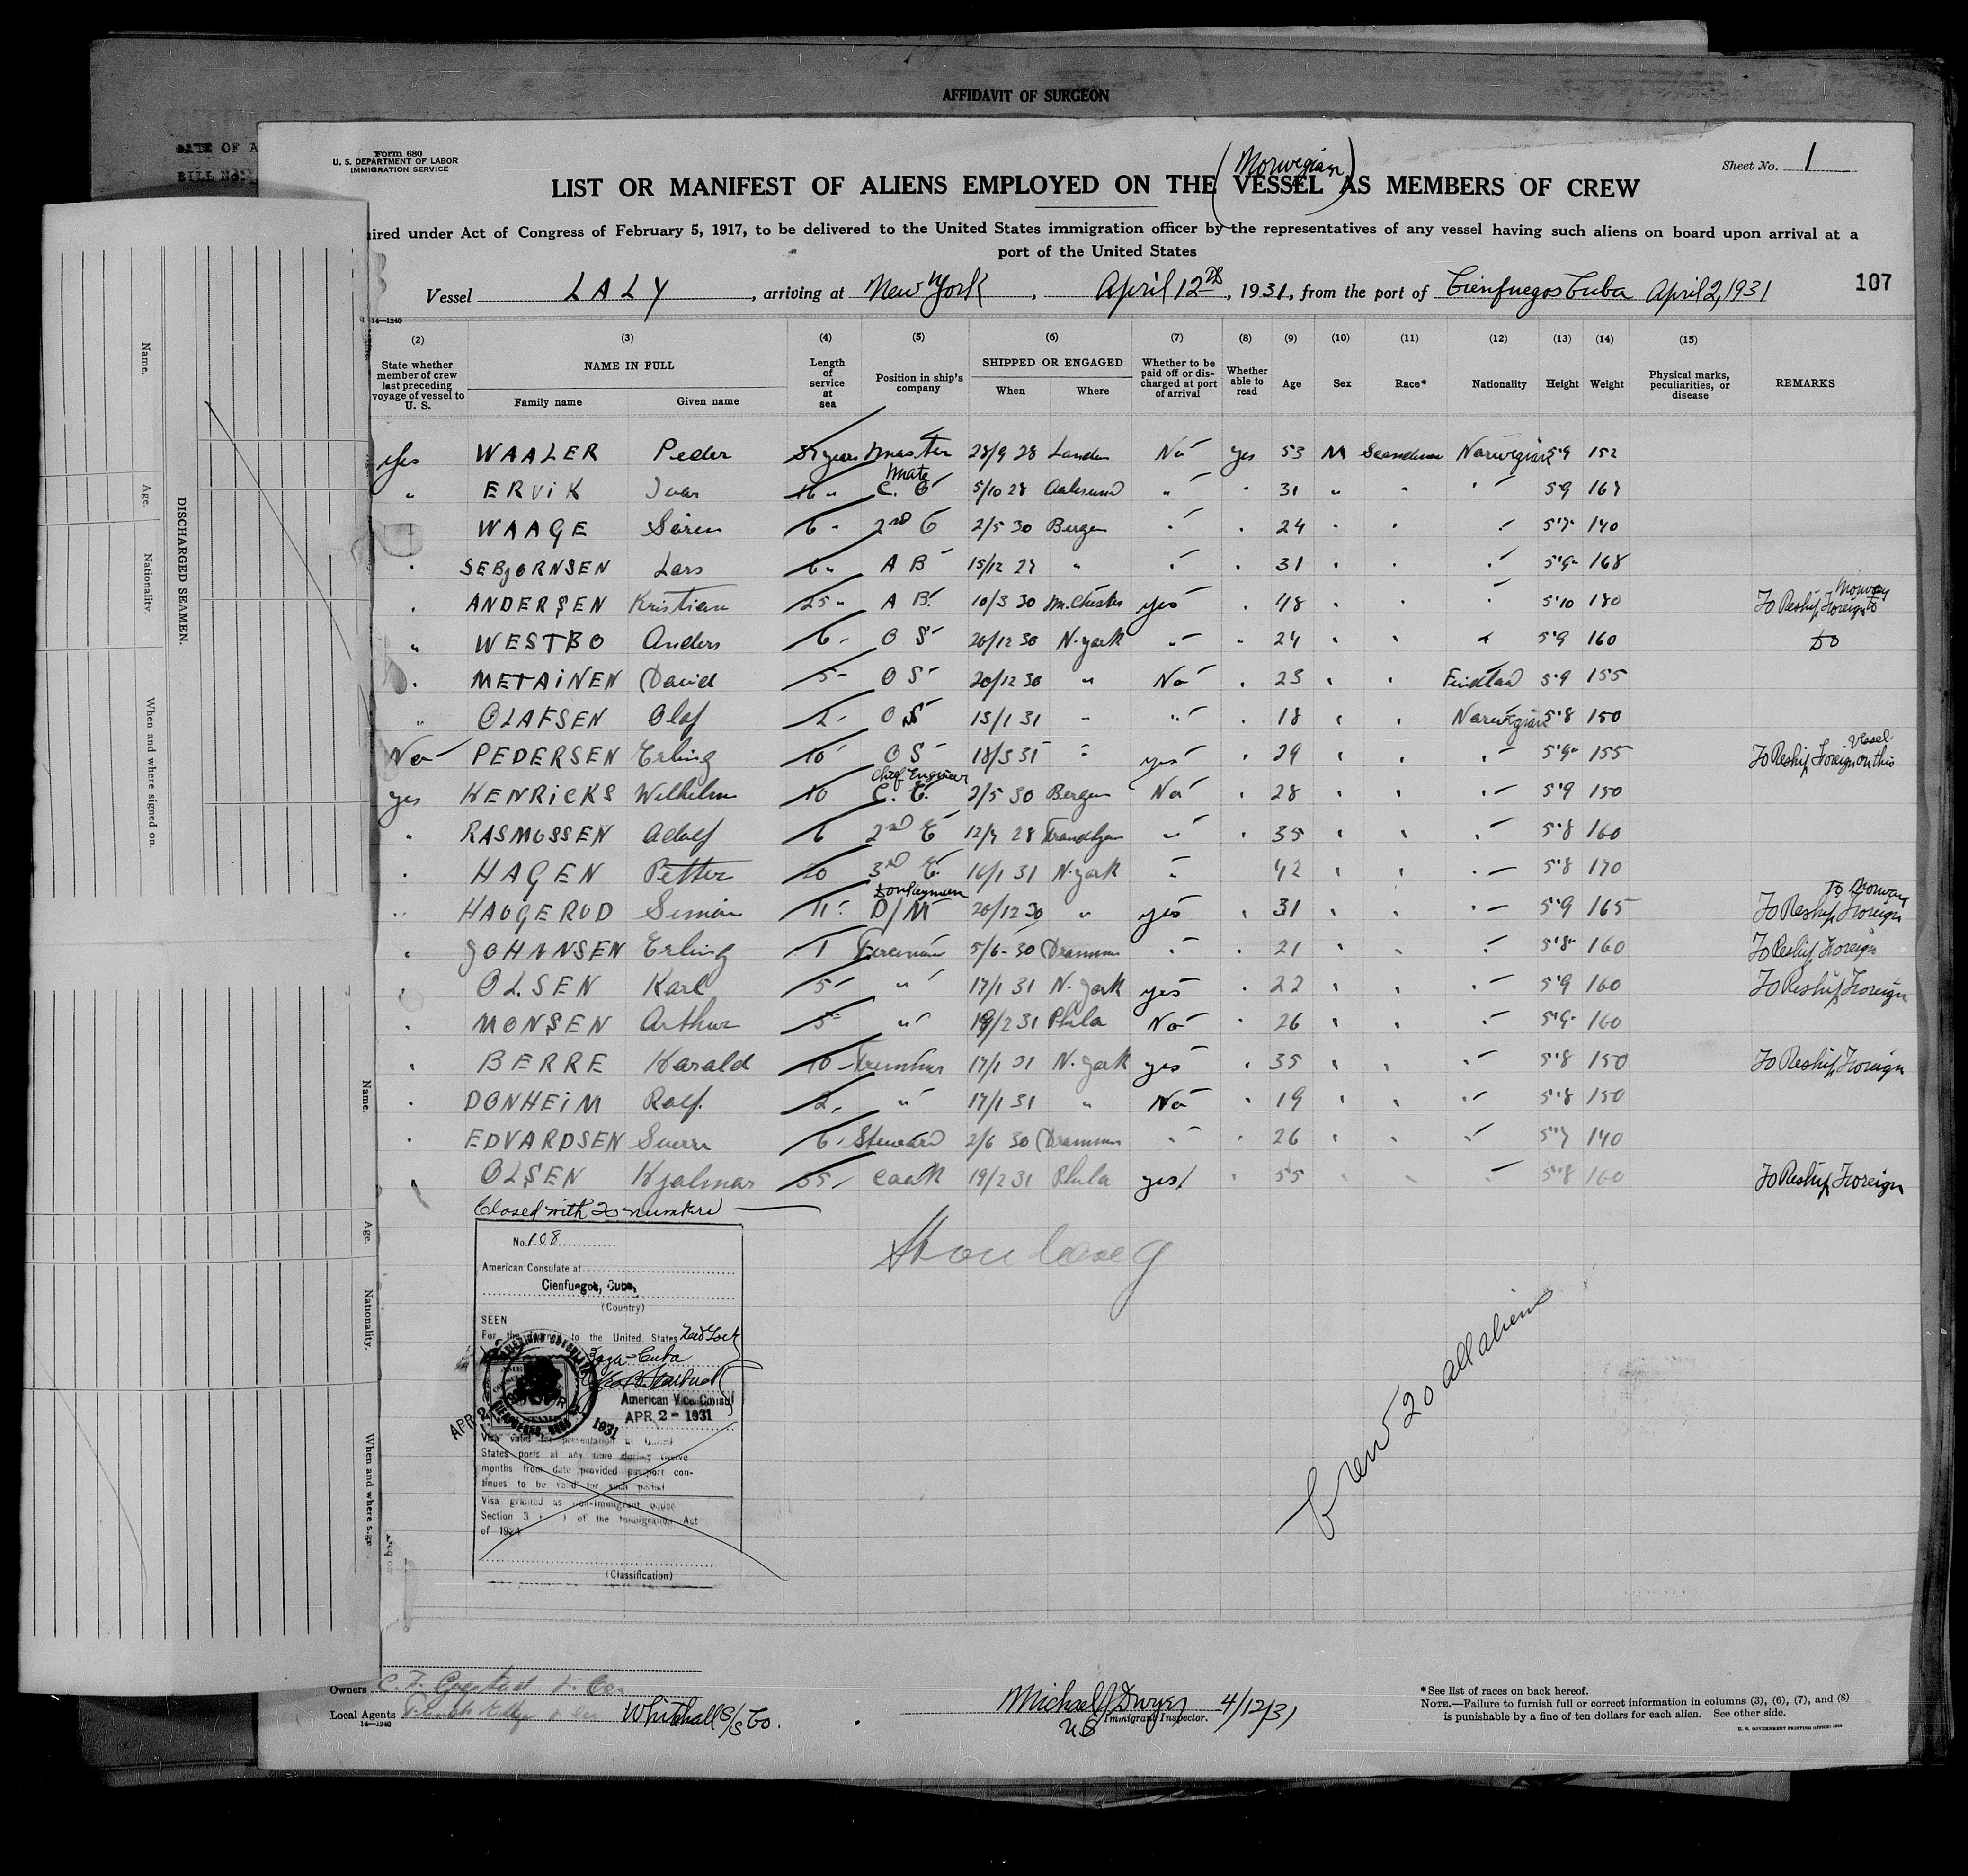 AFFIDAVIT OF SURGEON
DATE OF A
BILL NO.
Form 680
U. S. DEPARTMENT OF LABOR
IMMIGRATION SERVICE
Sheet No. 1
(Norwegian)
LIST OR MANIFEST OF ALIENS EMPLOYED ON THE VESSEL AS MEMBERS OF CREW
ired under Act of Congress of February 5, 1917, to be delivered to the United States immigration officer by the representatives of any vessel having such aliens on board upon arrival at a
port of the United States
Vessel LALY, arriving at New York, April 12th, 1931, from the port of Cienfuegos Cuba April 2, 1931
107
14—1240
(2) (3) (4) (5) (6) (7) (8) (9) (10) (11) (12) (13) (14) (15)
State whether member of crew last preceding voyage of vessel to U. S.
NAME IN FULL
Family name Given name
Length of service at sea
Position in ship's company
SHIPPED OR ENGAGED
When Where
Whether to be paid off or discharged at port of arrival
Whether able to read
Age Sex Race* Nationality Height Weight
Physical marks, peculiarities, or disease
REMARKS
Yes WAALER Peder years Master 28/9 28 London No yes 53 M Norwegian 5'9 152
" ERVIK Ivar 16 " Mate C. O 5/10 28 Aalesund " " 31 " " " 5'9 167
WAAGE Sören 6 " 2nd O 2/5 30 Bergen " " 24 " " " 5'7 140
" SEBJORNSEN Lars 6 " A B 15/12 27 " " " 31 " " " 5'9 168
" ANDERSEN Kristian 25 " A B. 10/3 30 M.Chester yes " 48 " " " 5'10 180 To Reship Foreign to Norway
" WESTBO Anders 6 - O S 20/12 30 N. york " " 24 " " " 5'9 160 Do
" METAINEN David 5 - O S 20/12 30 " No " 23 " " 5'9 155
" OLAFSEN Olaf 2 - O S 13/1 31 " " " 18 " " Norwegian 5'8 150
No PEDERSEN Erling 10 O S 18/3 31 " yes " 29 " " " 5'9 155 To Reship Foreign on this Vessel
yes HENRICKS Wilhelm 10 Chief Engineer C. E. 2/5 30 Bergen No " 28 " " " 5'9 150
" RASMUSSEN Adolf 6 2nd E 12/7 28 Trondhjem " " 35 " " " 5'8 160
" HAGEN Petter 20 3rd E. 16/1 31 N. york " 42 " " " 5'8 170
" HAUGERUD Simon 11 Donkeyman D/M 20/12 30 " yes " 31 " " " 5'9 165 To Reship Foreign To Norway
" JOHNNSEN Erling 1 Fireman 5/6 30 Drammen " " 21 " " " 5'8 160 To Reship Foreign
OLSEN Karl 5 " 17/1 31 N. york yes " 22 " " " 5'9 160 To Reship Foreign
" MONSEN Arthur 5 " 19/2 31 Phila No " 26 " " " 5'9 160
" BERRE Harald 10 Trimmer 17/1 31 N. york yes " 35 " " " 5'8 150 To Reship Foreign
" DONHEIM Rolf. 2 " 17/1 31 " No " 19 " " " 5'8 150
" EDVARDSEN Sverre 6 Steward 2/6 30 Drammen " " 26 " " " 5'7 140
" OLSEN Hjalmar 35 Cook 19/2 31 Phila yes " 55 " " " 5'8 160 To Reship Foreign
Closed with 20 numbers
No. 108
American Consulate at
Cienfuegos, Cuba,
(Country)
SEEN
For the journey to the United States New York
Cuba
American Vice Consul
APR 2 - 1931
APR 2 1931
Visa valid for presentation at United
States ports at any time during twelve
months from date provided passport con-
tinues to be valid for such period
Visa granted as non-immigrant under
Section 3 ( ) of the Immigration Act
of 1924
(Classification)
Crew 20 all aliens
Owners C. F.
Local Agents Whitehall S/S Co.
14—1240
Michael J Dwyer 4/12/31
US Immigrant Inspector.
*See list of races on back hereof.
NOTE.—Failure to furnish full or correct information in columns (3), (6), (7), and (8)
is punishable by a fine of ten dollars for each alien. See other side.
U. S. GOVERNMENT PRINTING OFFICE
DISCHARGED SEAMEN.
Name. Age. Nationality. When and where signed on.
Name. Age. Nationality. When and where